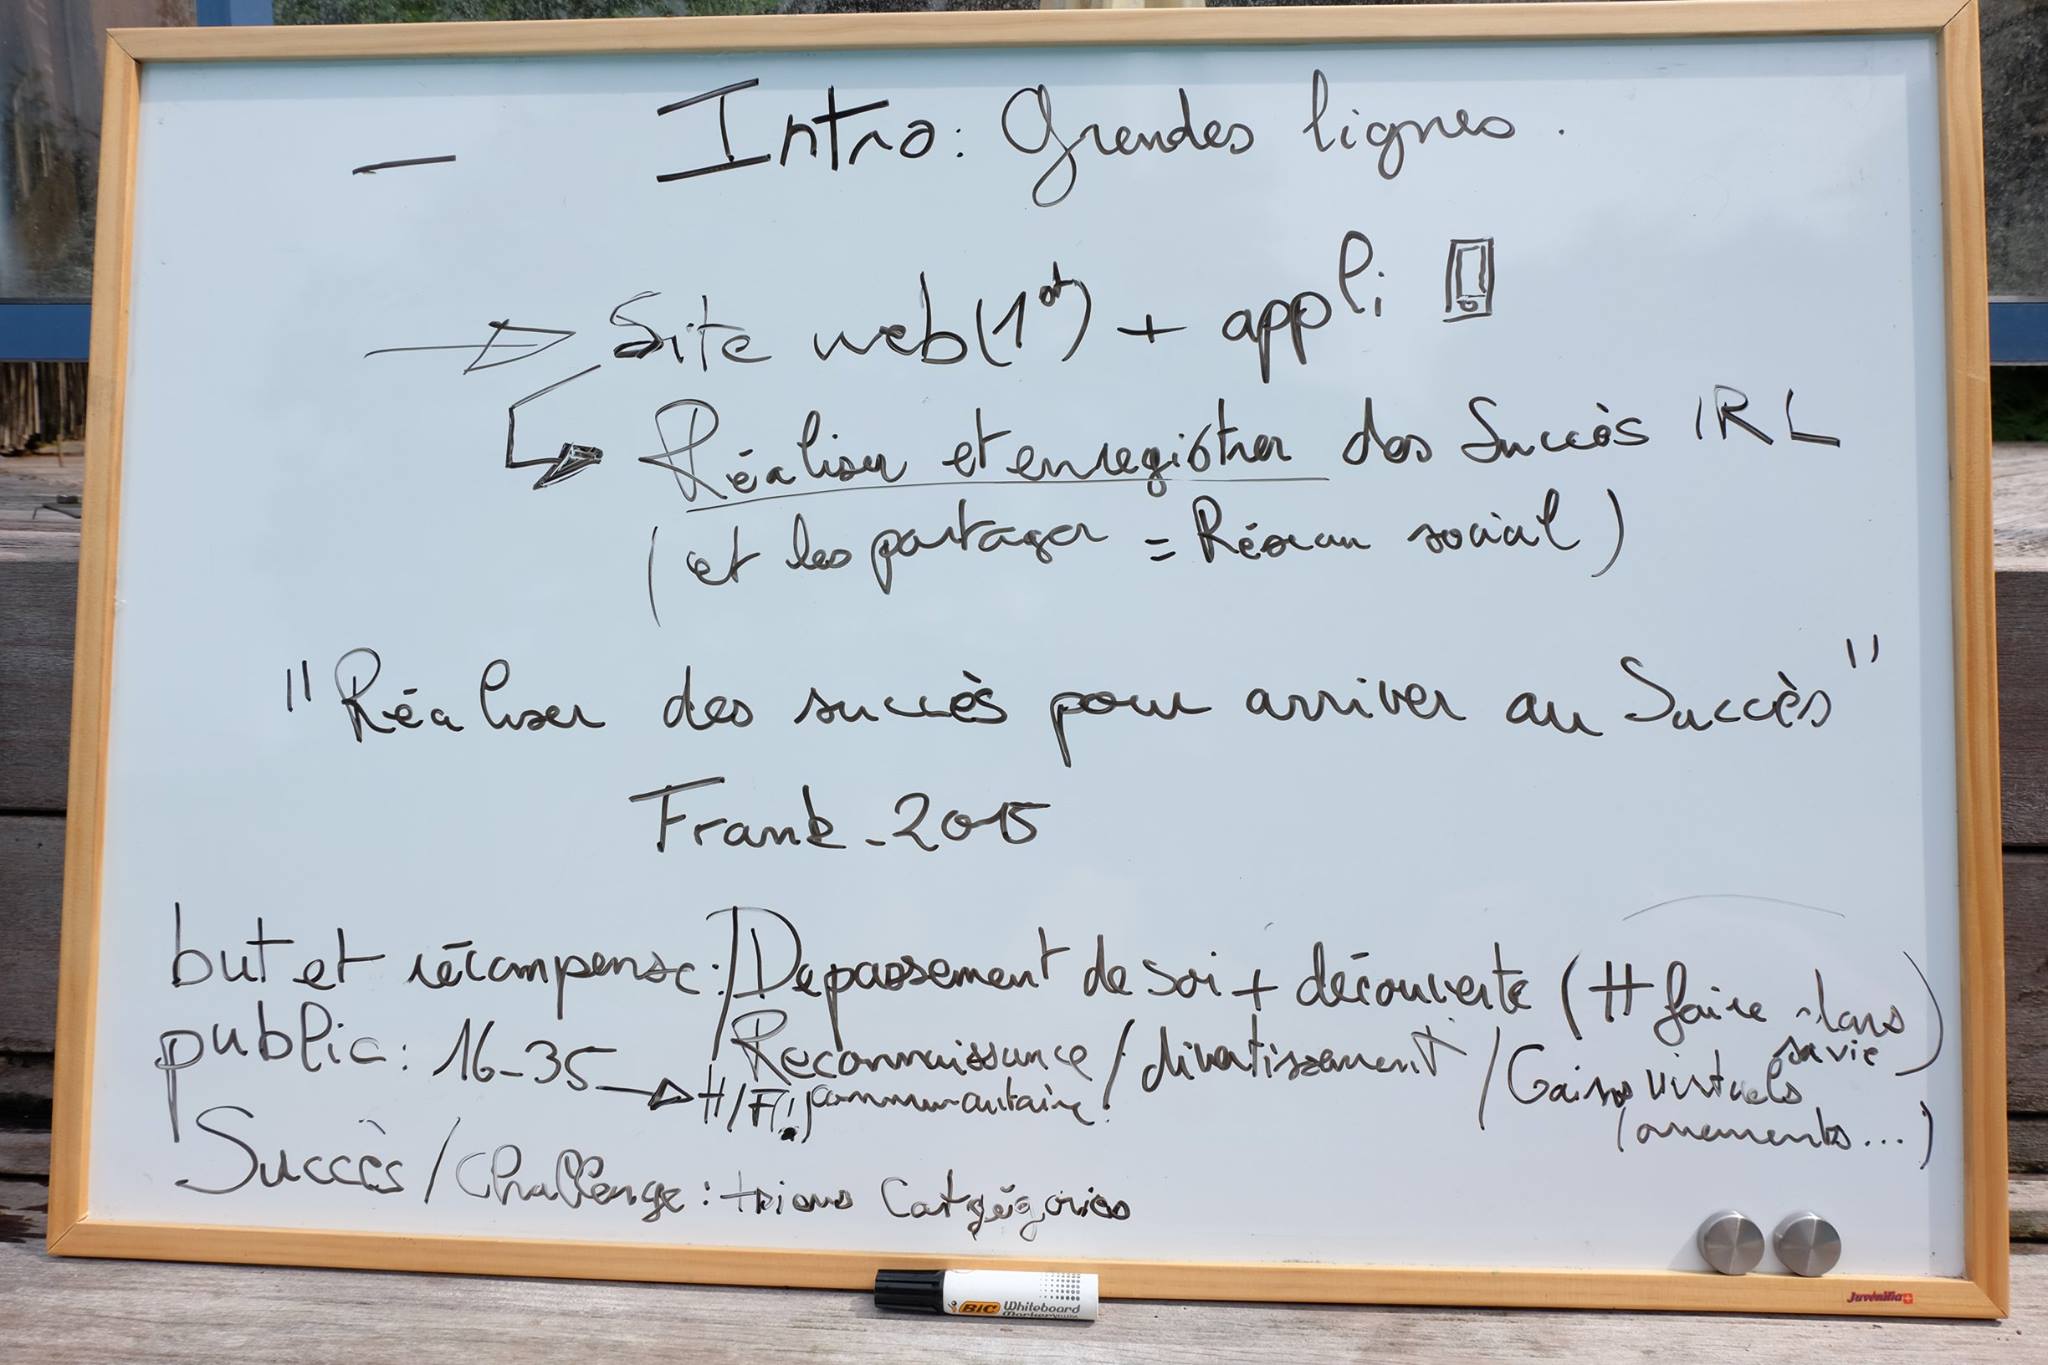 — Intro : Grandes lignes .
Site web (1er) + appli
Réaliser et enregistrer des Succès IRL
( et les partager = Réseau social )
" Réaliser des succès pour arriver au Succès "
Frank - 2015
but et récompense : / Depassement de soi + découverte ( # faire dans sa vie )
Reconnaissance / divertissement / Gains virtuels
( ornements ... )
public : 16 - 35 H / F ! communautaire !
Succès / Challenge : trions Catgégories
BIC Whiteboard
Marker
Juvénilia